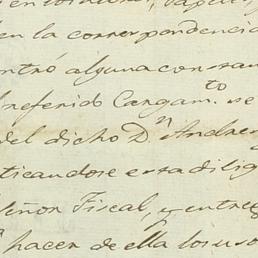 en la correspondencia
ntró alguna constan
referido Cargam.to se
del dicho D.n Andres
ticandose esta dilig
señor Fiscal, y entreg
hacer de ella los uso